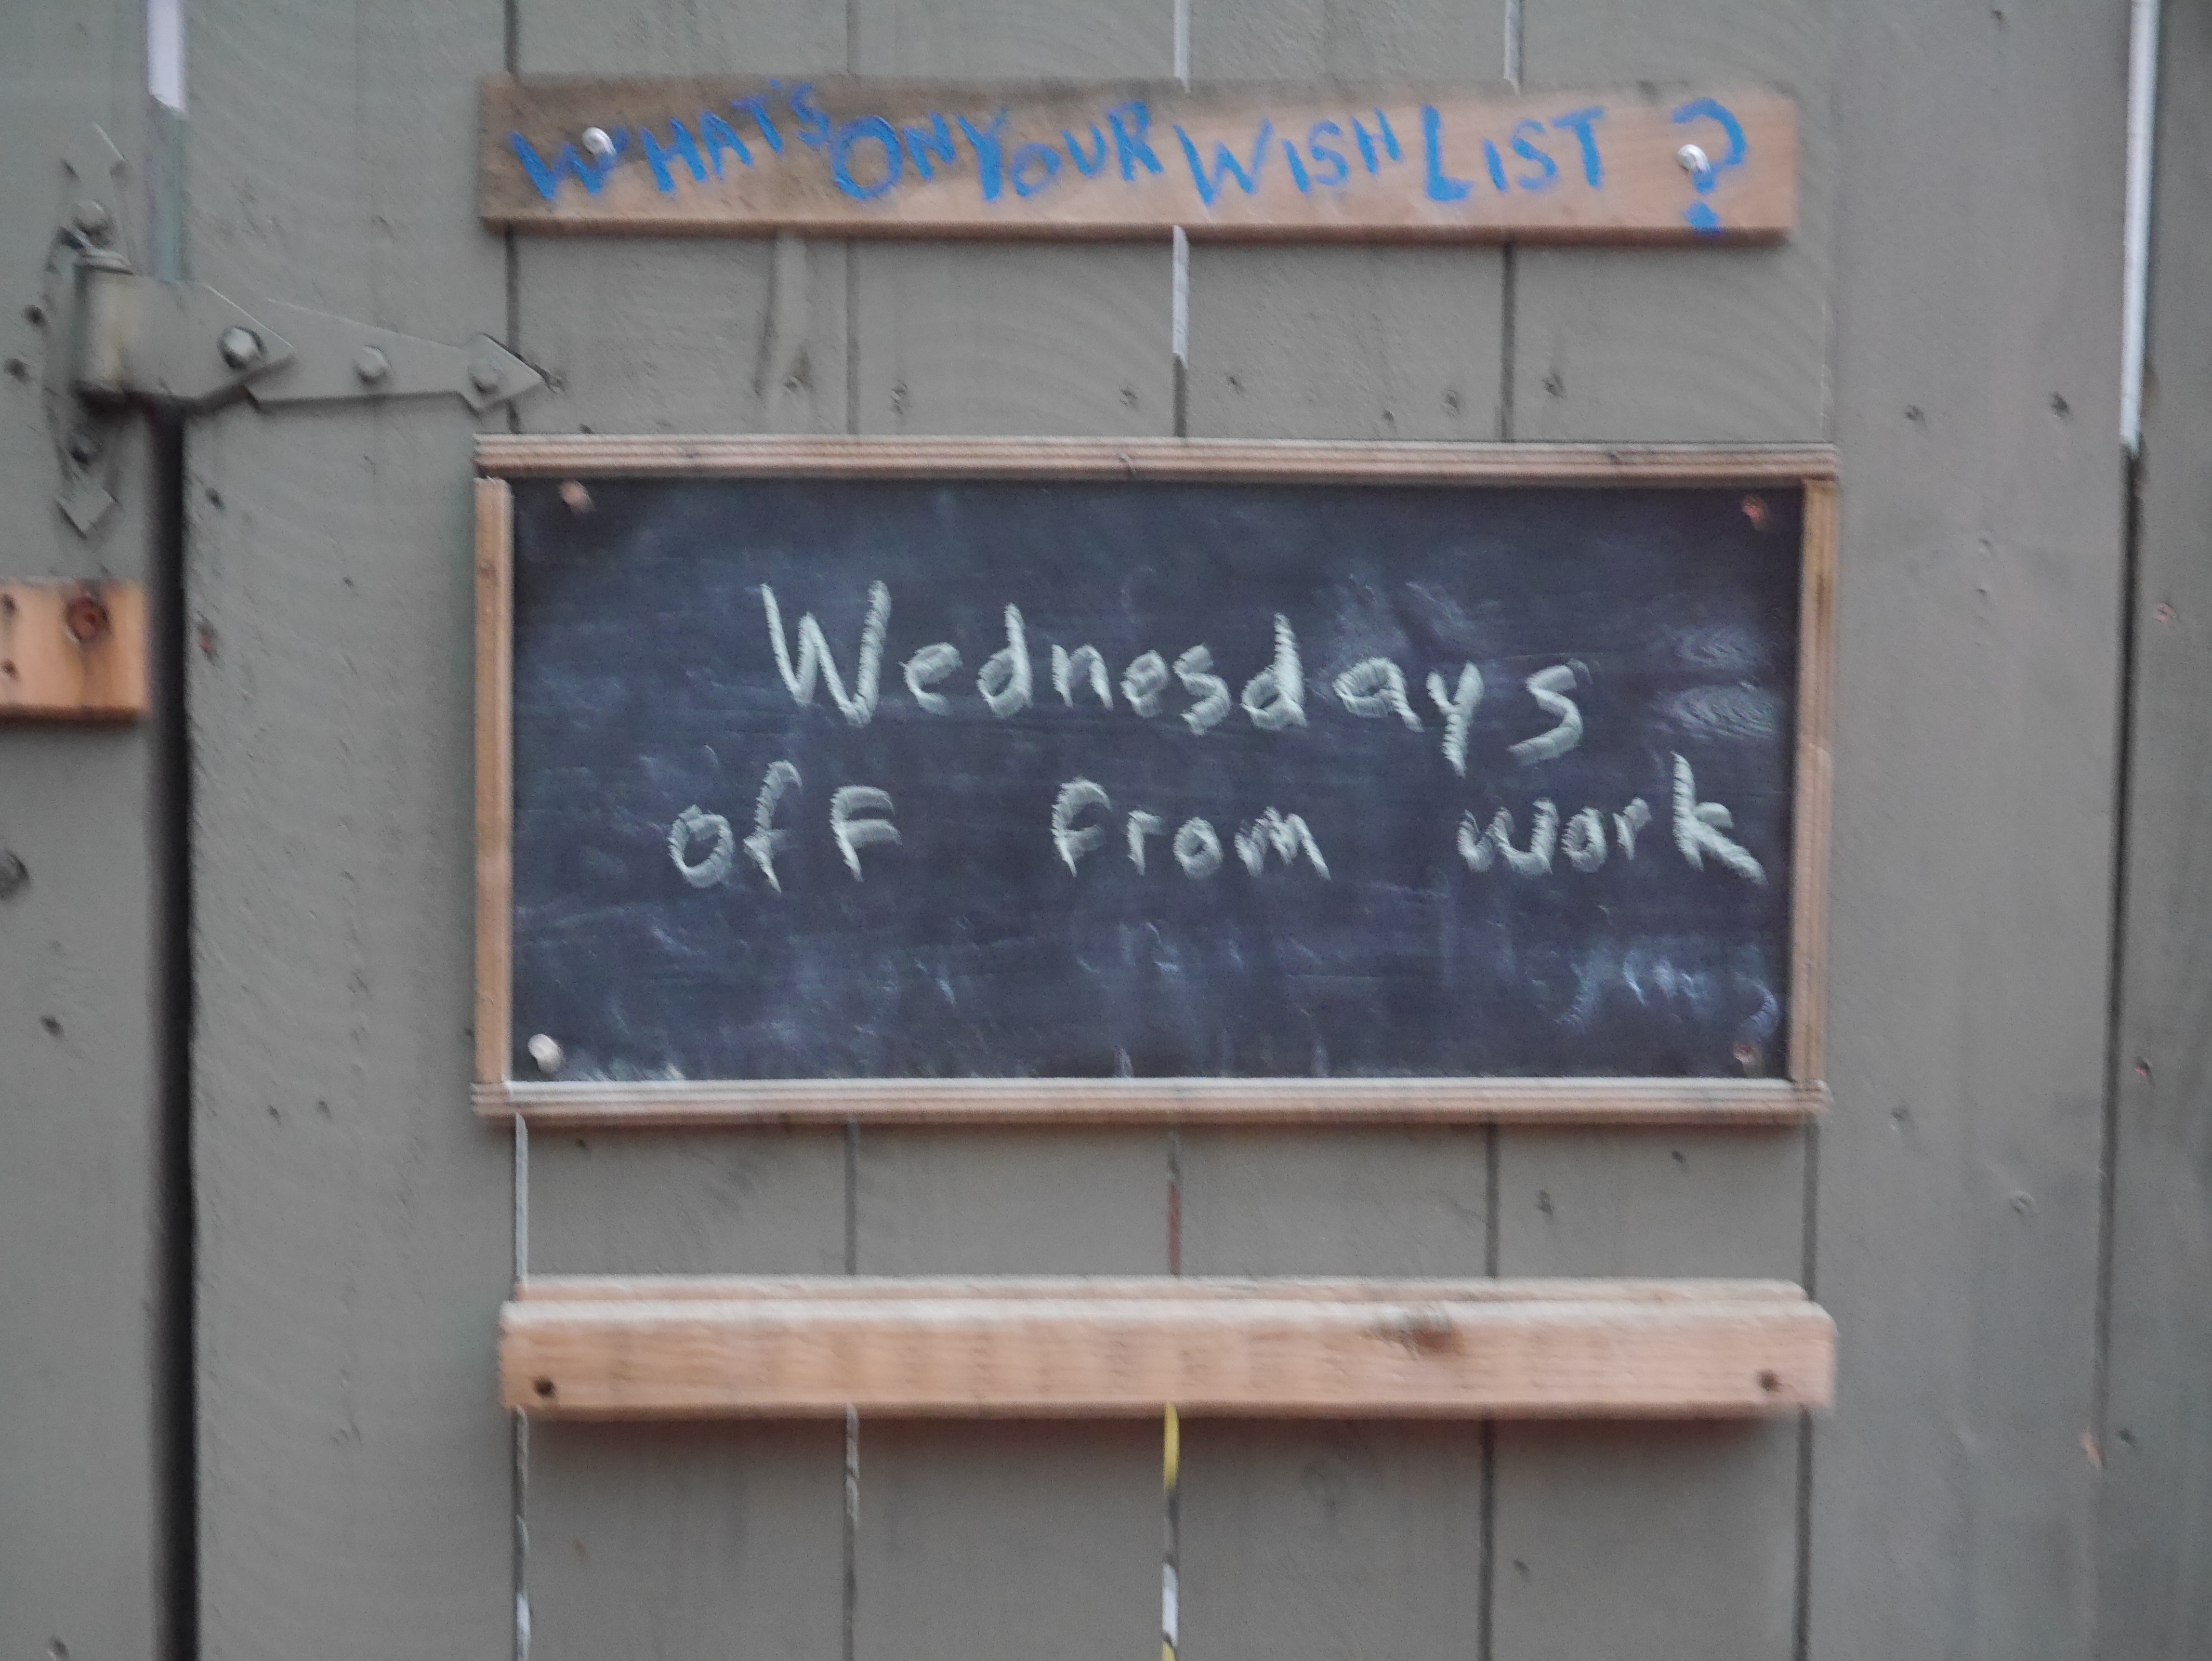 WHAT'S ON YOUR WISH LIST ?
Wednesdays
off from work